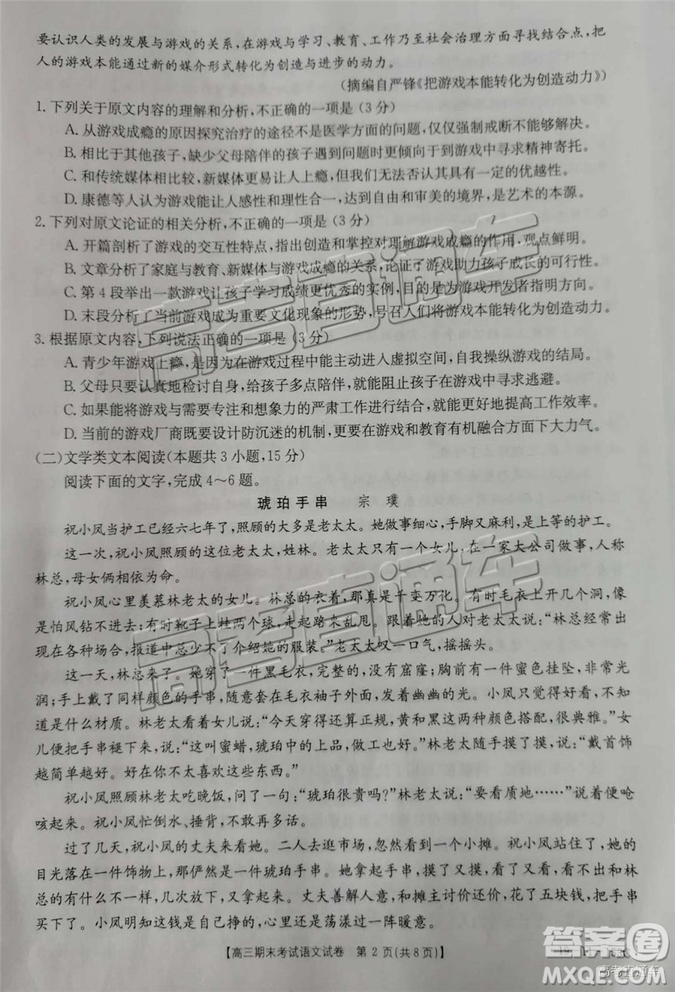 要认识人类的发展与游戏的关系,在游戏与学习、教育、工作乃至社会治理方面寻找结合点,把
人的游戏本能通过新的媒介形式转化为创造与进步的动力。
(摘编自严锋《把游戏本能转化为创造动力》)
1. 下列关于原文内容的理解和分析,不正确的一项是(3分)
A. 从游戏成瘾的原因探究治疗的途径不是医学方面的问题,仅仅强制戒断不能够解决。
B. 相比于其他孩子,缺少父母陪伴的孩子遇到问题时更倾向于到游戏中寻求解脱的办法。
C. 和传统媒体相比较,新媒体更易让人上瘾,但我们无法否认其具有一定的优越性。
D. 康德等人认为,游戏能让人感性和理性合一,达到自由和审美的境界,是艺术的本源。
2. 下列对原文论证的相关分析,不正确的一项是(3分)
A. 开篇剖析了游戏的交互性特点,指出创造和掌控对理解游戏成瘾的作用,观点鲜明。
B. 文章分析了家庭与教育、新媒体与游戏成瘾的关系,论证了游戏助力孩子成长的可行性。
C. 第4段举出一款游戏让孩子学习成绩更优秀的实例,目的是给游戏的开发者指明方向。
D. 末段分析了当游戏成为重要文化现象的形势,号召人们将游戏本能转化为创造动力。
3. 根据原文内容,下列说法正确的一项是(3分)
A. 青少年游戏上瘾,是因为在游戏过程中能主动进入虚拟空间,自我操纵游戏的结局。
B. 父母只要认真地检讨自己,给孩子多点陪伴,就能避免孩子在游戏中寻求逃避。
C. 如果能够将游戏与需要专注和想象力的严肃工作进行结合,就能更好地提高工作效率。
D. 当前的游戏厂商既要设计防沉迷的机制,更要在游戏和教育有机融合方面下大力气。
(二)文学类文本阅读(本题共3小题,15分)
阅读下面的文字,完成4~6题。
琥珀手串 宗 璞
祝小凤当护工已经六七年了,照顾的大多是老太太。她做事细心,手脚又麻利,是上等的护工。
这一次,祝小凤照顾的这位老太太,姓林。看来林老太太只有一个女儿,在大公司做事,人称
林总,母女俩相依为命。
祝小凤心里羡慕林老太的女儿。林总的衣着,那真是千变万化。有时毛衣上开几个洞,像
是怕风钻不进去;有时靴子上挂两个球,走起路来乱甩。跟着她的人对祝小凤说:“林总若是出
现在各种场合,报道总少不了介绍她的服装。”老太太叹一口气,摇摇头。
这一天,林总来了。她穿了一件黑毛衣,完整的,没有窟窿;胸前有一件蜜色挂坠,非常光
润;手上戴了同样颜色的手串,随意套在毛衣袖子外面,发着幽幽的光。小凤很觉奇怪,不知道
是什么材质。林老太看着女儿说:“今天穿得还算正常,黄和黑这两种颜色搭配,很典雅。”女
儿便把手串褪下来,说:“这叫蜜蜡,琥珀中的上品。”林老太随手摸了摸,说:“戴首饰
越简单越好。好在你不太喜欢这些东西。”
祝小凤照顾林老太吃晚饭,问了一句:“琥珀很贵吗?”林老太说:“要看质地……”说着便呛
咳起来。祝小凤忙倒水、捶背,不敢再多话。
过了几天,祝小凤的丈夫来看她。二人去逛市场,忽然看到一个小摊。祝小凤站住了,她的
目光落在一件饰物上,那俨然是一个琥珀手串。她拿起来,摸了又摸,看了又看,看不出和林
总的那一件有什么不同。最后还是放下了,走了几步,又回头看。丈夫善解人意,和摊主讨价还
价,摊主说:“看你们是真喜欢,就照顾你们了,这是最低价。”丈夫毅然拿起来,花了五块钱,把手串
买下了。小凤明知这钱是自己挣的,心里还是荡漾过一阵暖意。
【高三期末考试语文试卷 第2页(共8页)】
高考直通车
答案圈
MXQE.COM